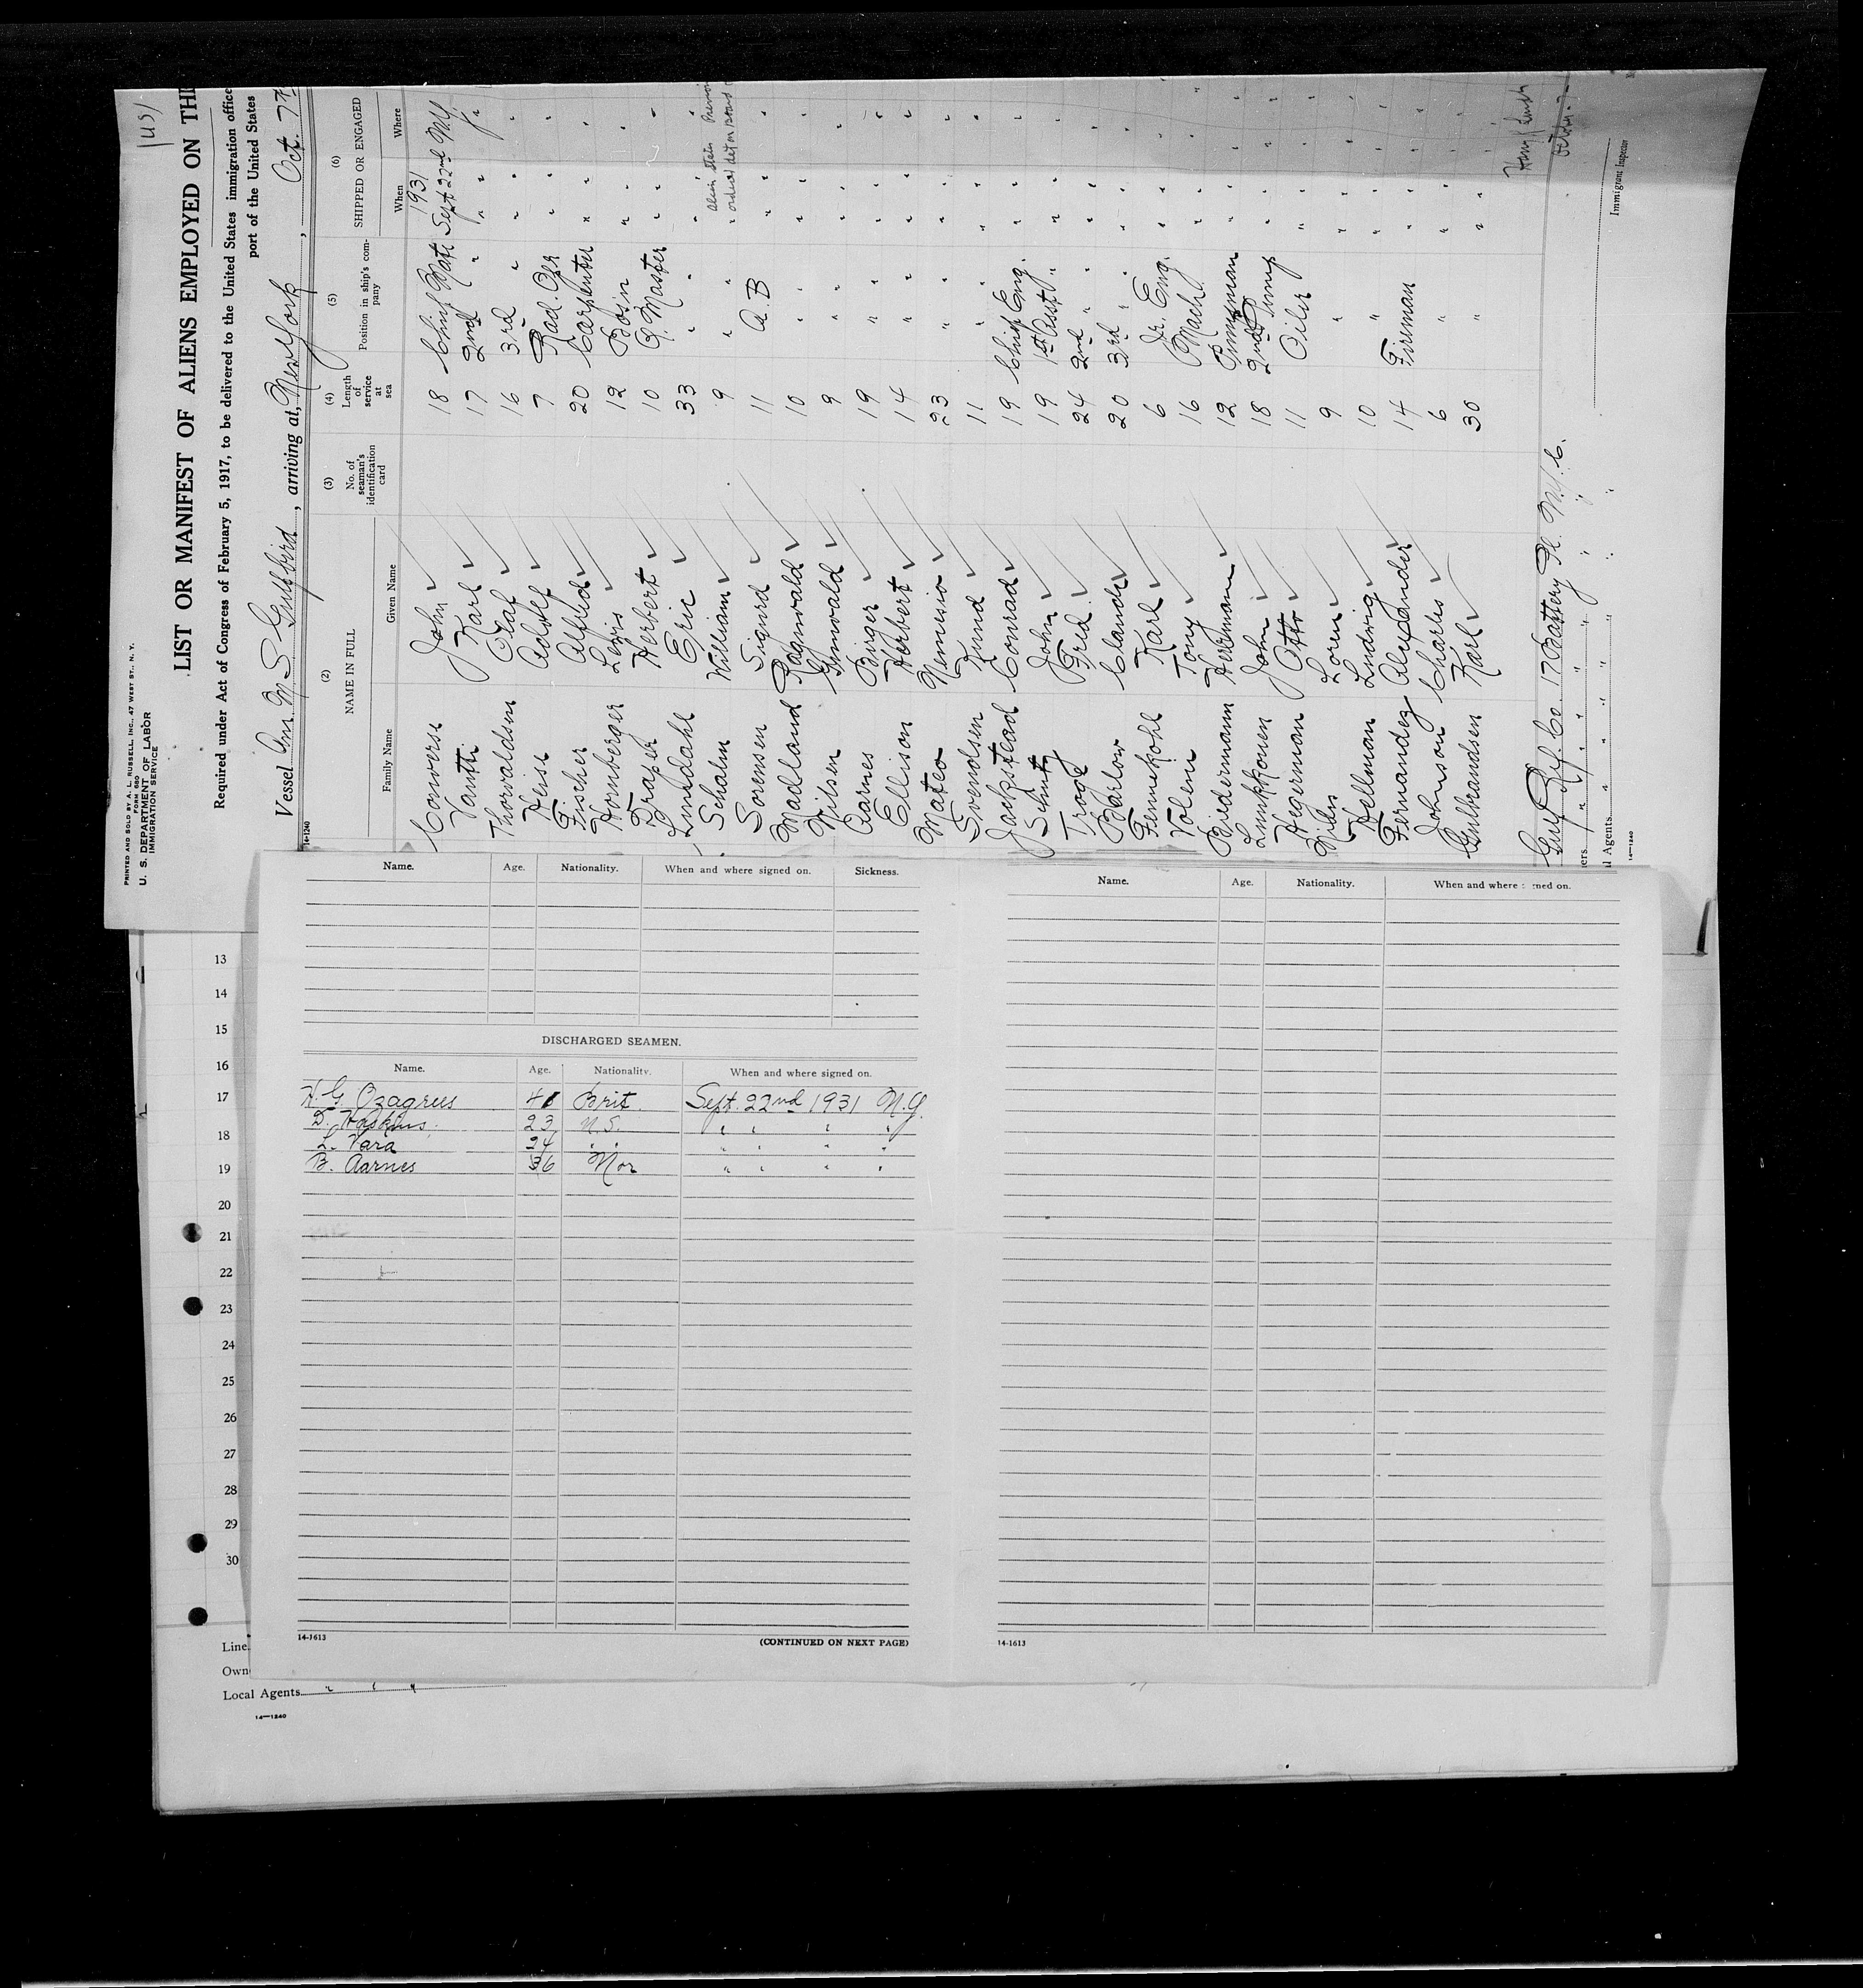 1151
PRINTED AND SOLD BY A. L. RUSSELL, INC., 47 WEST ST., N. Y.
FORM 680
U. S. DEPARTMENT OF LABOR
IMMIGRATION SERVICE
LIST OR MANIFEST OF ALIENS EMPLOYED ON TH
Required under Act of Congress of February 5, 1917, to be delivered to the United States immigration office
port of the United States
Vessel Am. M S Gulfbird, arriving at, New York, Oct. 7th
14-1240
(2) (3) (4) (5) (6)
NAME IN FULL No. of seaman's identification card Length of service at sea Position in ship's company SHIPPED OR ENGAGED
Family Name Given Name When Where
1931
Converse John 18 Chief Mate Sept 22nd N.Y.
Vantti Karl 17 2nd " " " "
Thorvaldsen Olaf 16 3rd " " " "
Heise Adolf 7 Rad. Opr " " "
Fischer Alfred 20 Carpenter " " "
Homberger Louis 12 Bos'n " " "
Draper Herbert 10 Q. Master " " "
Lindahl Eric 33 " " " "
Schalm William 9 " "
Sorensen Sigurd 11 A.B " " "
Madland Ragnvald 10 " " " "
Nilsen 9 " " " "
Aarnes Birger 19 " " " "
Ellison Herbert 14 " " " "
Mateo Nemesio 23 " " " "
Svendsen Knud 11 " " " "
Jackstead Conrad 19 Chief Eng. " " "
Schultz John 19 1st Asst " " "
Trogg Fred 24 2nd " " " "
Barlow Claude 20 3rd " " " "
Fennekohl Karl 6 Jr. Eng. " " "
Volem Tony 16 Mach " " "
Biedermann Herman 12 Pumpman " " "
Lunkkonen John 18 2nd Pump " " "
Hegerman Otto 11 Oiler " " "
Niles Loren 9 " " " "
Hellman Ludwig 10 " " " "
Fernandez Alexander 14 Fireman " " "
Johnson Charles 6 " " " "
Gulbrandsen Karl 30 " " " "
Gulf Ref. Co. 17 Battery Pl. N.Y.C.
ers
l Agents
14-1240
Immigrant Inspector
Name. Age. Nationality. When and where signed on. Sickness.
DISCHARGED SEAMEN.
Name. Age. Nationality. When and where signed on.
H. G. Ozagrees 41 Brit. Sept. 22nd 1931 N.Y.
D. Haskins. 23 U.S. " " " "
L. Vara 24 " " " "
B. Aarnes 36 Nor " " " "
14-1613 (CONTINUED ON NEXT PAGE)
Name. Age. Nationality. When and where ned on.
14-1613
13
14
15
16
17
18
19
20
21
22
23
24
25
26
27
28
29
30
Line
Own
Local Agents " " "
14-1240